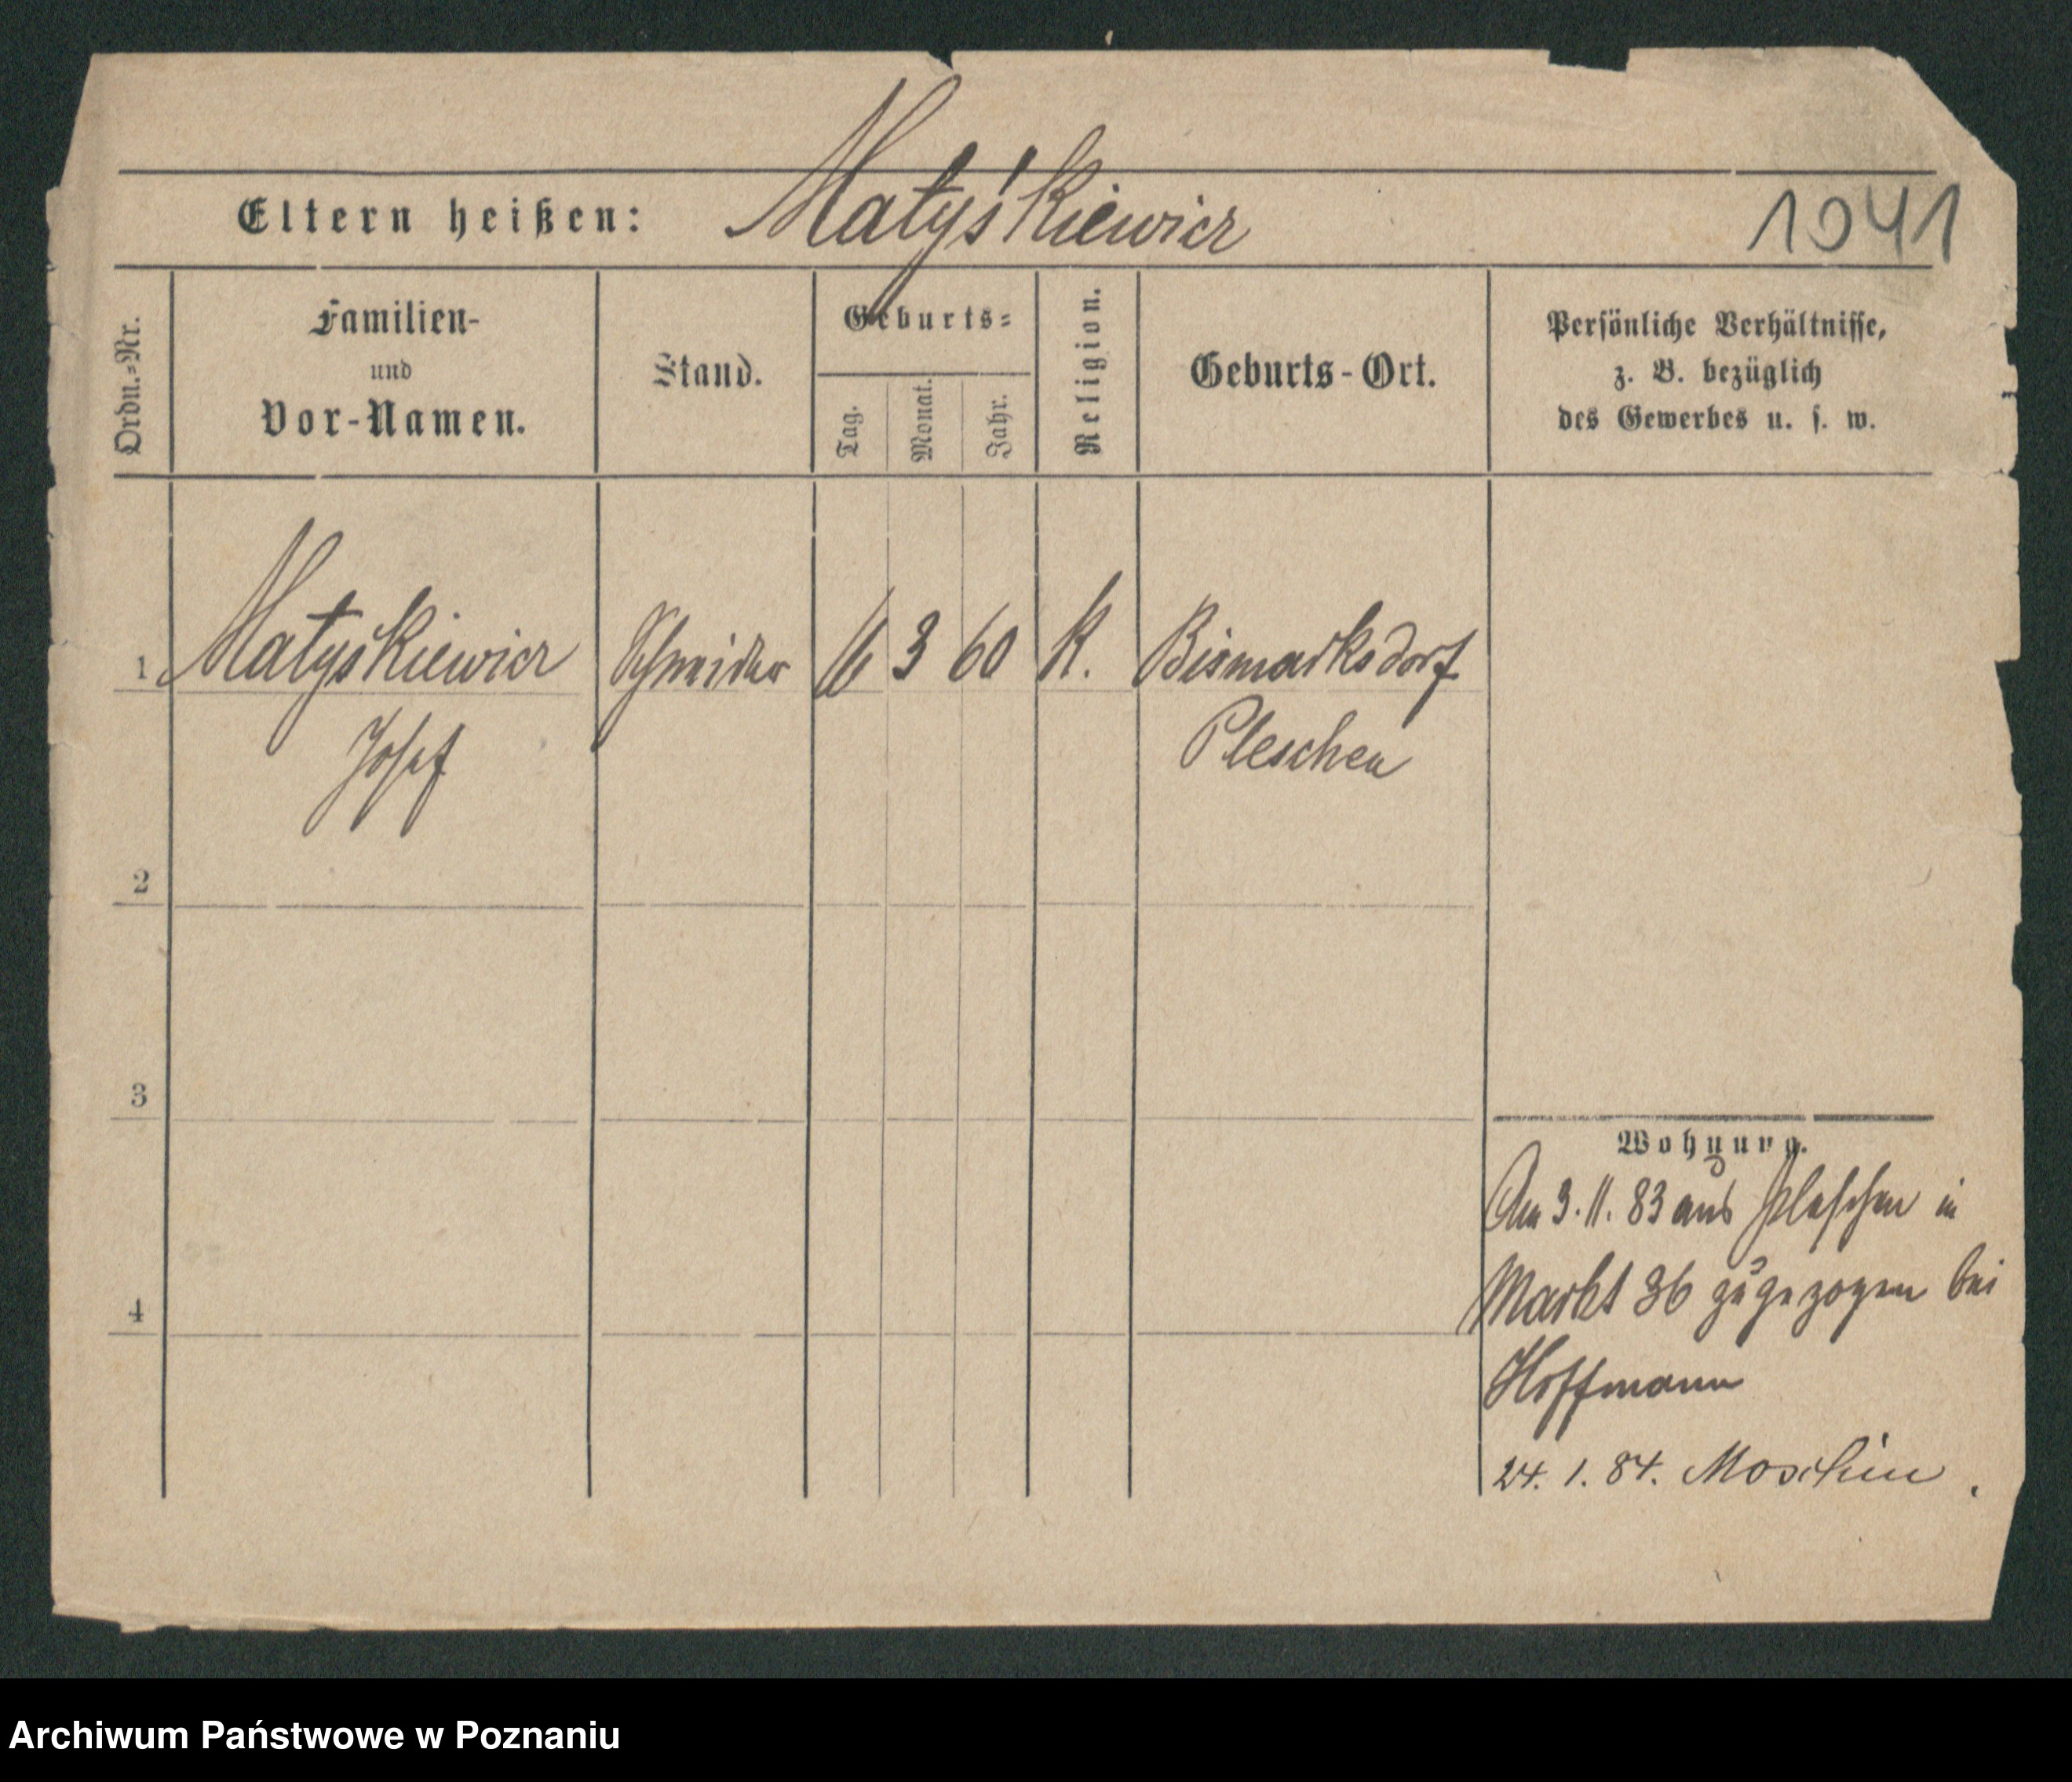 Eltern heißen: Matyśkiewicz 1041
Ordn.=Nr.
Familien-
und
Vor-Namen.
Stand.
Geburts=
Tag.
Monat.
Jahr.
Religion.
Geburts-Ort.
Persönliche Verhältnisse,
z. B. bezüglich
des Gewerbes u. s. w.
1 Matyśkiewicz Schneider 16 3 60 K. Bismarksdorf
Josef Pleschen
2
3
Wohnung.
Am 3.11.83 aus Pleschen in
4 Markt 36 zugezogen bei
Hoffmann
24.1.84. Moschin.
Archiwum Państwowe w Poznaniu